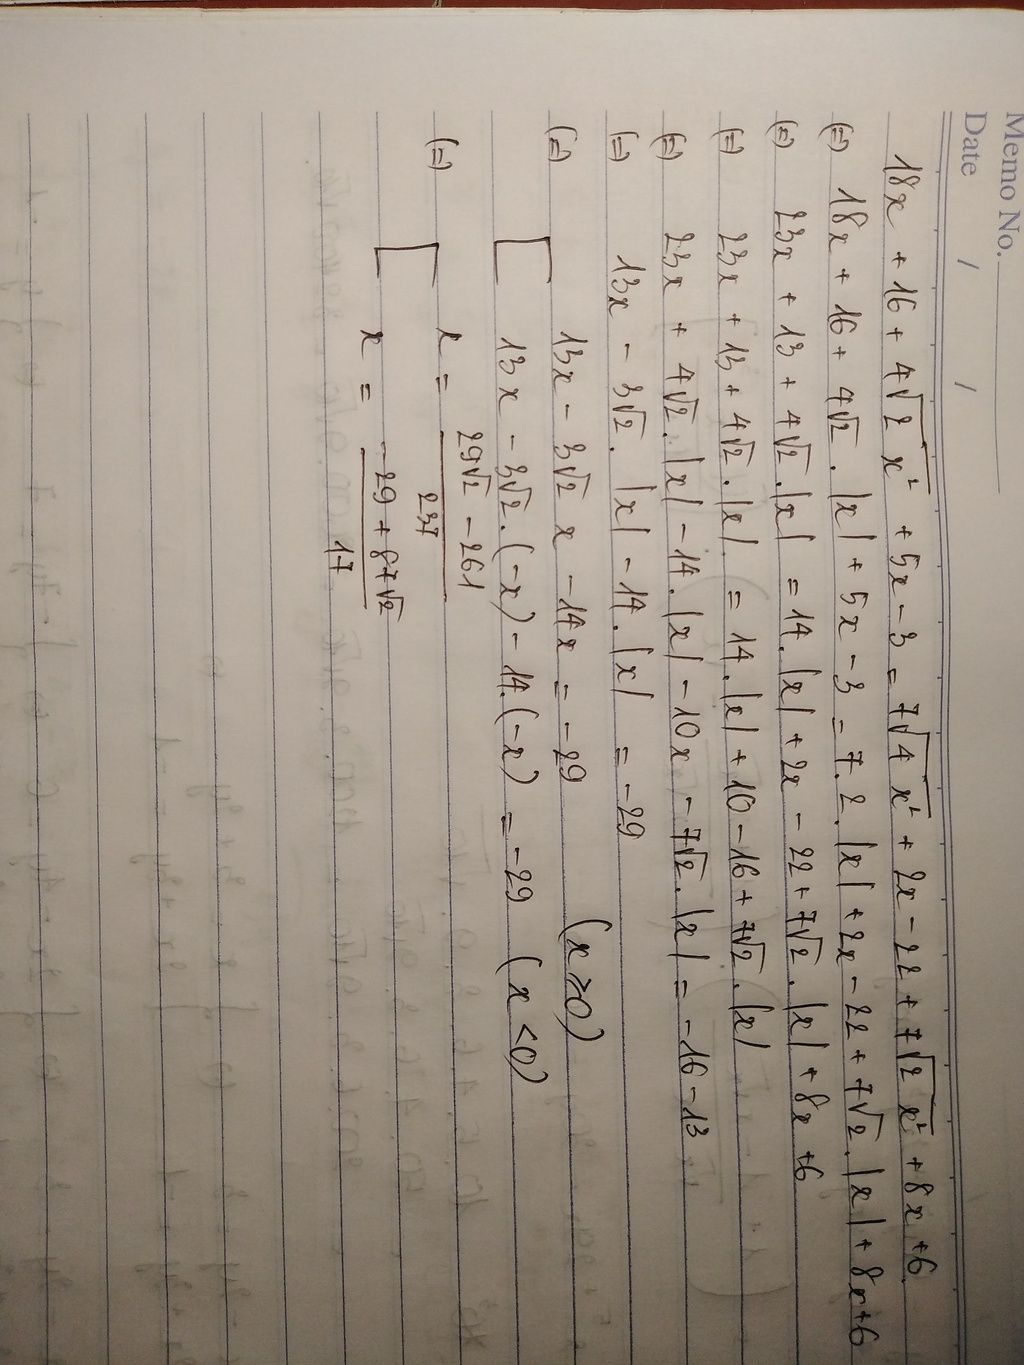 Memo No.
Date / /
18x + 16 + 4√2x² + 5x - 3 = 7√4x² + 2x - 22 + 7√2x² + 8x + 6
(=) 18x + 16 + 4√2 . |x| + 5x - 3 = 7.2.|x| + 2x - 22 + 7√2.|x| + 8x + 6
(=) 23x + 13 + 4√2.|x| = 14.|x| + 2x - 22 + 7√2.|x| + 8x + 6
(=) 23x + 13 + 4√2.|x| = 14.|x| + 10 - 16 + 7√2.|x|
(=) 23x + 4√2.|x| - 14.|x| - 10x - 7√2.|x| = -16 - 13
(=) 13x - 3√2.|x| - 14.|x| = -29
(=) [ 13x - 3√2x - 14x = -29 (x ≥ 0)
13x - 3√2.(-x) - 14.(-x) = -29 (x < 0)
(=) [ x = (29√2 - 261)/237
x = (-29 + 87√2)/17